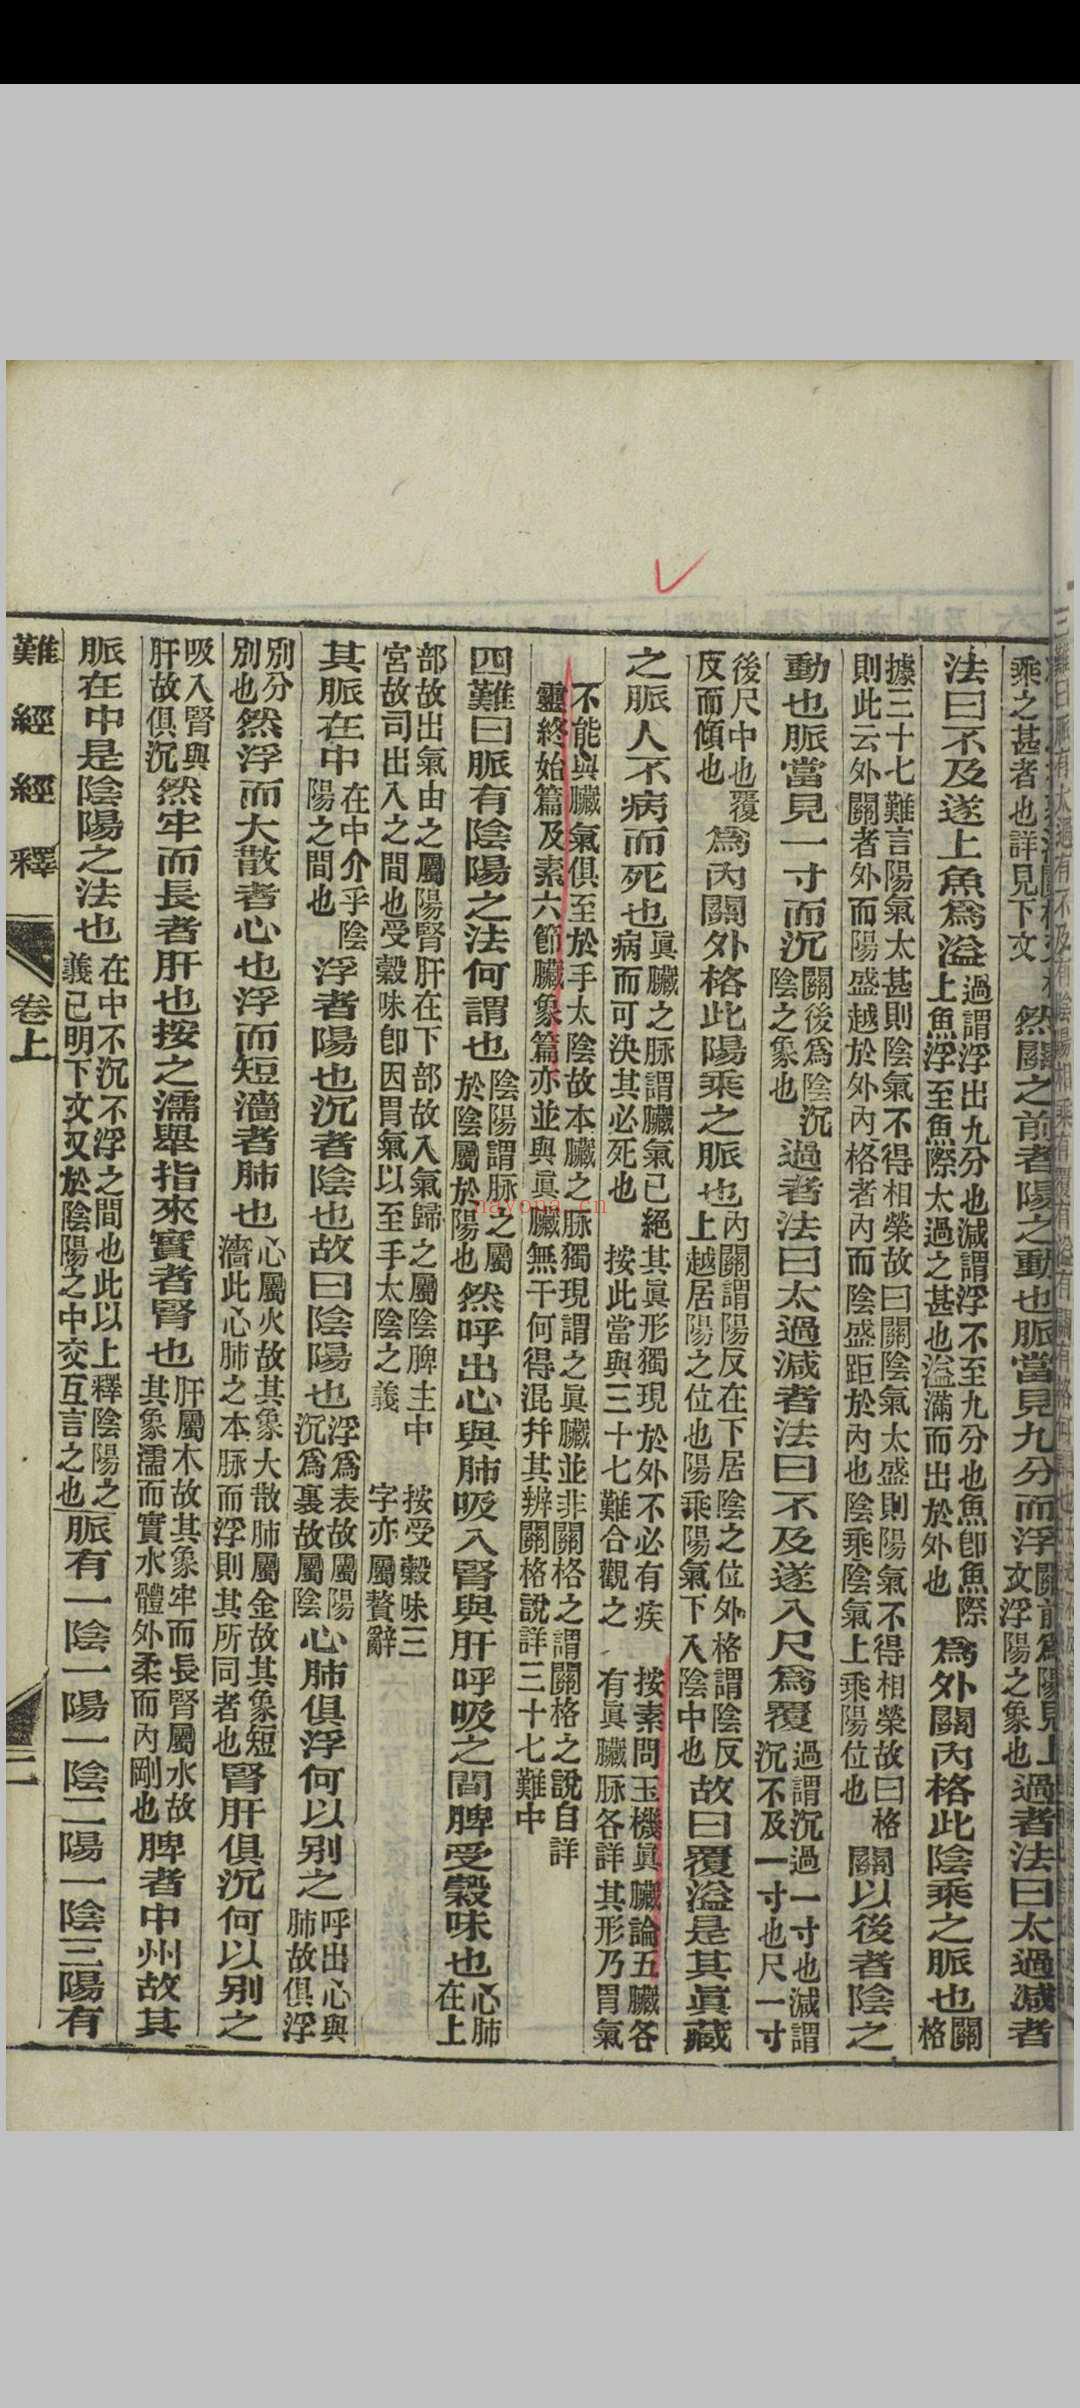 乘之甚者也詳見下文
然關之前者陽之動也脈當見九分而浮
關前爲陽見上
文浮陽之象也
過者法曰太過減者
法曰不及遂上魚爲溢
過謂浮出九分也減謂浮不至九分也魚卽魚際
上魚浮至魚際太過之甚也溢滿而出於外也
爲外關內格此陰乘之脈也
關
格
據三十七難言陽氣太甚則陰氣不得相榮故曰關陰氣太盛則陽氣不得相榮故曰格
則此云外關者外而陽盛越於外內格者內而陰盛距於內也陰乘陰氣上乘陽位也
關以後者陰之
動也脈當見一寸而沉
關後爲陰沉
陰之象也
過者法曰太過減者法曰不及遂入尺爲覆
過謂沉過一寸也減謂
沉不及一寸也尺一寸
後尺中也覆
反而傾也
爲內關外格此陽乘之脈也
內關謂陽反在下居陰之位外格謂陰反
上越居陽之位也陽乘陽氣下入陰中也
故曰覆溢是其眞藏
之脈人不病而死也
眞臟之脉謂臟氣已絕其眞形獨現於外不必有疾
病而可決其必死也　按此當與三十七難合觀之
按素問玉機眞臟論五臟各
有眞臟脉各詳其形乃胃氣
不能與臟氣俱至於手太陰故本臟之脉獨現謂之眞臟並非關格之謂關格之說自詳
靈終始篇及素六節臟象篇亦並與眞臟無干何得混幷其辨關格說詳三十七難中
四難曰脈有陰陽之法何謂也
陰陽謂脈之屬
於陰屬於陽也
然呼出心與肺吸入腎與肝呼吸之間脾受穀味也
心肺
在上
部故出氣由之屬陽腎肝在下部故入氣歸之屬陰脾主中
宮故司出入之間也受穀味卽因胃氣以至手太陰之義
按受穀味三
字亦屬贅辭
其脈在中
在中介乎陰
陽之間也
浮者陽也沉者陰也故曰陰陽也
浮爲表故屬陽
沉爲裏故屬陰
心肺俱浮何以別之
呼出心與
肺故俱浮
別分
別也
然浮而大散者心也浮而短濇者肺也
心屬火故其象大散肺屬金故其象短
濇此心肺之本脉而浮則其所同者也
腎肝俱沉何以別之
吸入腎與
肝故俱沉
然牢而長者肝也按之濡舉指來實者腎也
肝屬木故其象牢而長腎屬水故
其象濡而實水體外柔而內剛也
脾者中州故其
脈在中是陰陽之法也
在中不沉不浮之間也此以上釋陰陽之
義已明下文又於陰陽之中交互言之也
脈有一陰一陽一陰二陽一陰三陽有
難經經釋
卷上
二
nayona.cn